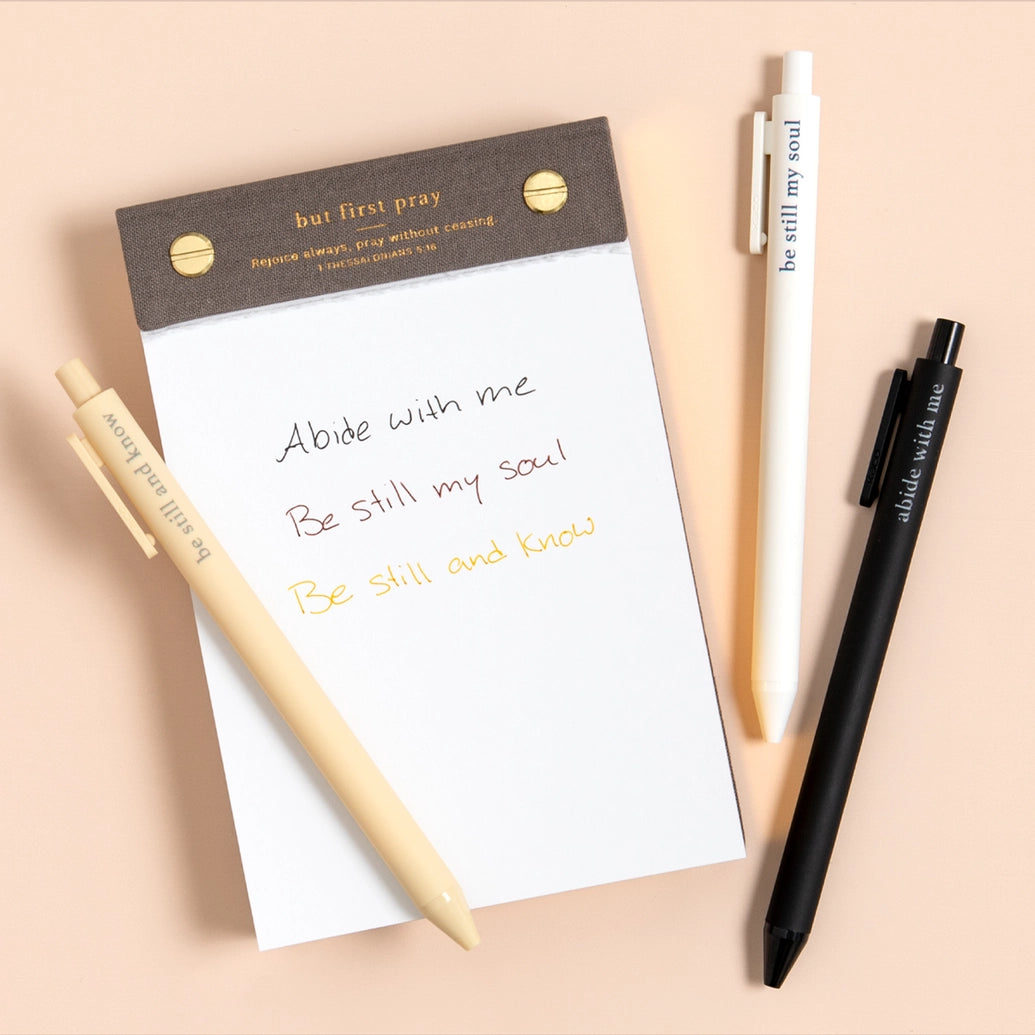 but first pray
Rejoice always, pray without ceasing.
1 THESSALONIANS 5:16
Abide with me
Be still my soul
Be still and know
be still and know
be still my soul
abide with me